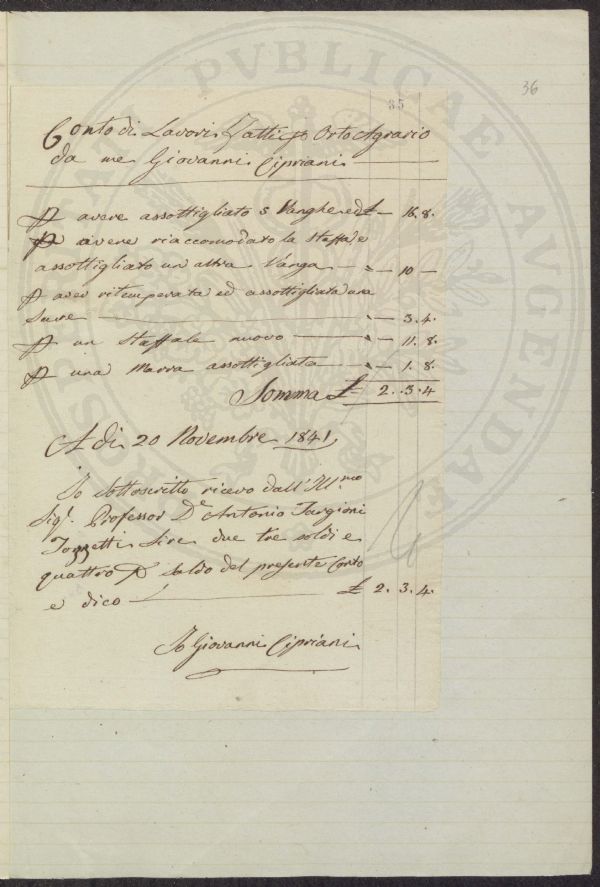 36
35
Conto di Lavori Fatti p Orto Agrario
da me Giovanni Cipriani
P avere assottigliato 5 Vanghe ed £ — 16. 8.
P avere riaccomodato la Staffa e
assottigliato un altra Vanga — " — 10 —
P aver ritemperata ed assottigliata una
Scure — " — 3. 4.
P un Staffale nuovo — " — 11. 8.
P una Marra assottigliata — " — 1. 8.
Somma £ = 2. 3. 4
A di 20 Novembre 1841,
Io sottoscritto ricevo dall' Ill.mo
Sig.r Professor D.e Antonio Targioni
Tozzetti Lire due tre soldi e
quattro P saldo del presente Conto
e dico — £ 2. 3. 4.
Io Giovanni Cipriani
PVBLICAE
AVGENDAE
PROSPERITATI